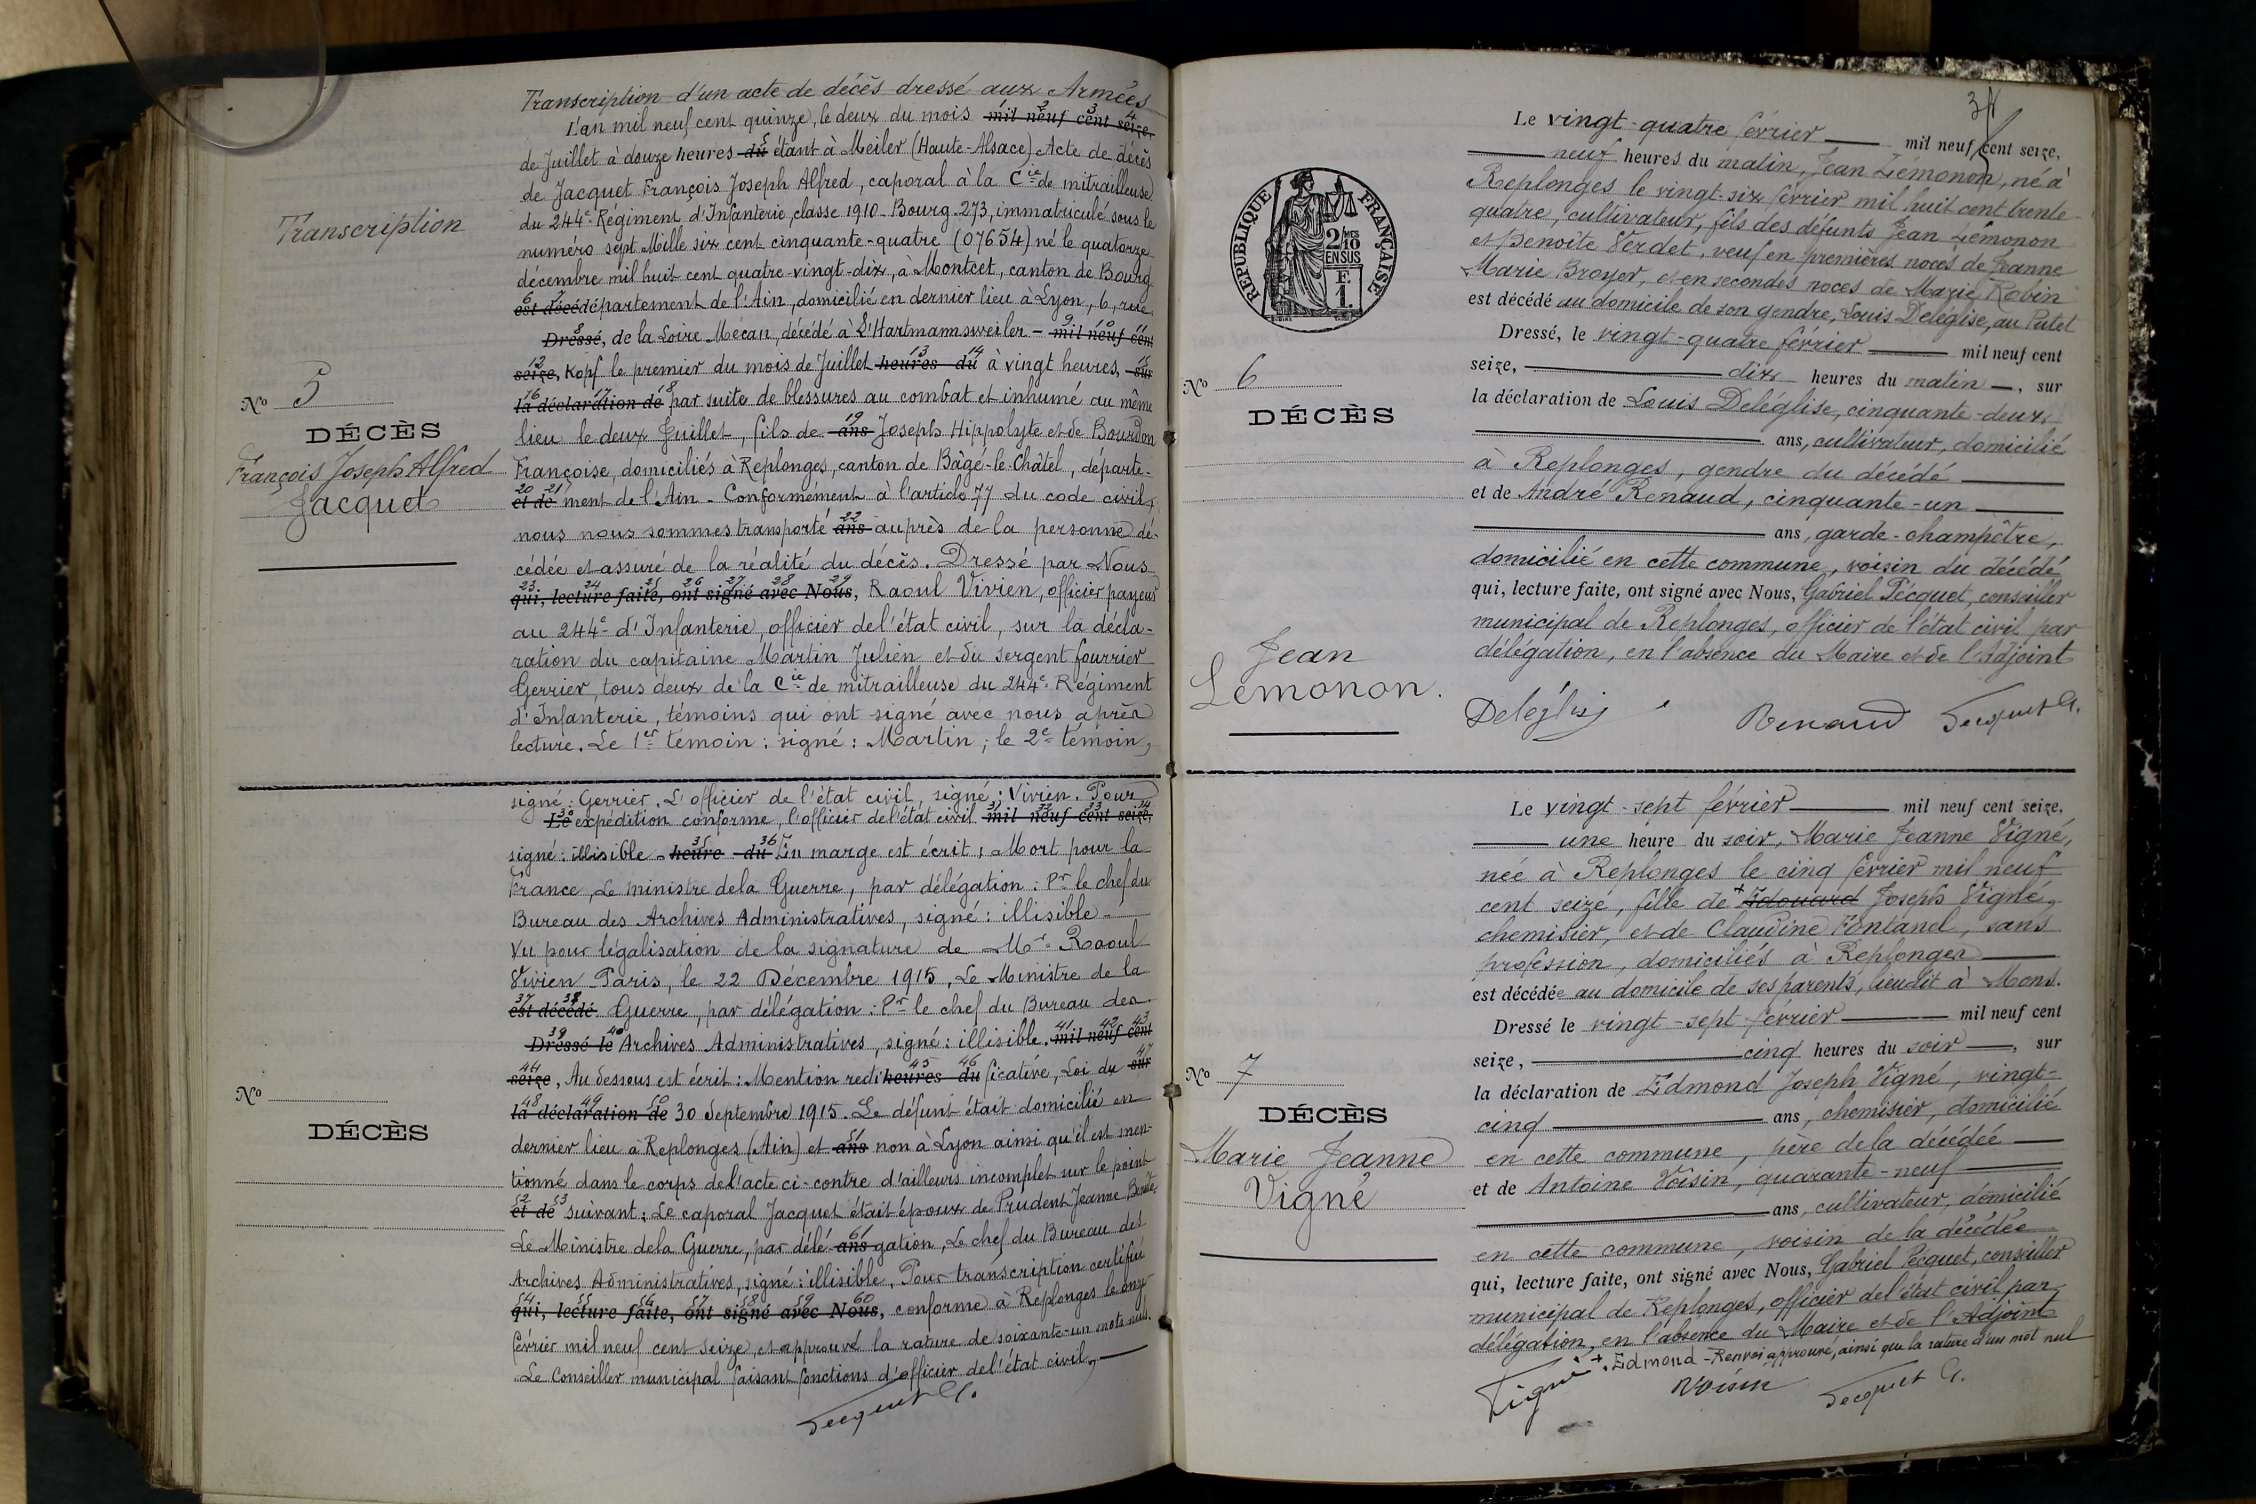 Transcription d'un acte de décès dressé aux Armées
L'an mil neuf cent quinze, le deux du mois mil neuf cent seize,
de Juillet à douze heures du étant à Meiler (Haute-Alsace) Acte de décès
de Jacquet François Joseph Alfred, caporal à la Cie de mitrailleuse
du 244e Régiment d'Infanterie, classe 1910 - Bourg - 273, immatriculé sous le
Transcription
numéro sept Mille six cent cinquante-quatre (07654) né le quatorze
décembre mil huit cent quatre-vingt-dix, à Montcet, canton de Bourg
6 7
est décédé département de l'Ain, domicilié en dernier lieu à Lyon, 6, rue
Dressé, de la Loire Mécan, décédé à L'Hartmannsweiler - mil neuf cent
seize, Kopf le premier du mois de Juillet heures du à vingt heures, sur
la déclaration de par suite de blessures au combat et inhumé au même
No 5
DÉCÈS
François Joseph Alfred
Jacquet
lieu le deux Juillet, fils de ans Joseph Hippolyte et de Bourdon
Françoise, domiciliés à Replonges, canton de Bâgé-le-Châtel, départe-
20 21
et de ment de l'Ain - Conformément à l'article 77 du code civil,
nous nous sommes transporté ans auprès de la personne dé-
cédée et assuré de la réalité du décès. Dressé par Nous
23 24 25 26 27 28 29
qui, lecture faite, ont signé avec Nous, Raoul Vivien, officier payeur
au 244e d'Infanterie, officier de l'état civil, sur la décla-
ration du capitaine Martin Julien et du sergent fourrier
Gerrier, tous deux de la Cie de mitrailleuse du 244e Régiment
d'Infanterie, témoins qui ont signé avec nous après
lecture. Le 1er témoin : signé : Martin ; le 2e témoin,
signé : Gerrier. L'officier de l'état civil, signé : Vivien. Pour
Le expédition conforme, l'officier de l'état civil mil neuf cent seize,
signé : illisible - heure du En marge est écrit : Mort pour la
France, Le ministre de la Guerre, par délégation : Pr le chef du
Bureau des Archives Administratives, signé : illisible -
Vu pour légalisation de la signature de Mr Raoul
Vivien Paris, le 22 Décembre 1915, Le Ministre de la
37 38
est décédé Guerre, par délégation : Pr le chef du Bureau des
Dressé le Archives Administratives, signé : illisible. mil neuf cent
seize, Au dessous est écrit : Mention recti heures du ficative, Loi du sur
No
DÉCÈS
la déclaration de 30 Septembre 1915. Le défunt était domicilié en
dernier lieu à Replonges (Ain) et ans non à Lyon ainsi qu'il est men-
tionné dans le corps de l'acte ci-contre d'ailleurs incomplet sur le point
52 53
et de suivant : Le caporal Jacquet était époux de Prudent Jeanne
Le Ministre de la Guerre, par délé ans gation, Le chef du Bureau des
Archives Administratives, signé : illisible, Pour transcription certifiée
54 55 56 57 58 59 60
qui, lecture faite, ont signé avec Nous, conforme à Replonges le onze
février mil neuf cent seize, et approuvé la rature de soixante-un mots nuls.
Le Conseiller municipal faisant fonctions d'officier de l'état civil,
Pecquet G.
Le vingt-quatre février mil neuf cent seize,
neuf heures du matin, Jean Lémonon, né à
Replonges le vingt-six février mil huit cent trente
quatre, cultivateur, fils des défunts Jean Lémonon
et Benoîte Verdet, veuf en premières noces de Jeanne
Marie Broyer, et en secondes noces de Marie Robin
est décédé au domicile de son gendre, Louis Deléglise, au Putet
Dressé, le vingt-quatre février mil neuf cent
seize, dix heures du matin, sur
RÉPUBLIQUE FRANÇAISE
2/10 MES
EN SUS
F.
1.
No 6
DÉCÈS
Jean
Lemonon.
la déclaration de Louis Deléglise, cinquante-deux
ans, cultivateur, domicilié
à Replonges, gendre du décédé
et de André Renaud, cinquante-un
ans, garde-champêtre,
domicilié en cette commune, voisin du décédé
qui, lecture faite, ont signé avec Nous, Gabriel Pecquet, conseiller
municipal de Replonges, officier de l'état civil par
délégation, en l'absence du Maire et de l'Adjoint
Deléglise Renaud Pecquet G.
Le vingt-sept février mil neuf cent seize,
une heure du soir, Marie Jeanne Vigné,
née à Replonges le cinq février mil neuf
cent seize, fille de + Edouard Joseph Vigné,
chemisier, et de Claudine Fontanel, sans
profession, domiciliés à Replonges
est décédée au domicile de ses parents, lieudit à Mons.
Dressé le vingt-sept février mil neuf cent
seize, cinq heures du soir, sur
No 7
DÉCÈS
Marie Jeanne
Vigné
la déclaration de Edmond Joseph Vigné, vingt-
cinq ans, chemisier, domicilié
en cette commune, père de la décédée
et de Antoine Voisin, quarante-neuf
ans, cultivateur, domicilié
en cette commune, voisin de la décédée
qui, lecture faite, ont signé avec Nous, Gabriel Pecquet, conseiller
municipal de Replonges, officier de l'état civil par
délégation, en l'absence du Maire et de l'Adjoint
+. Edmond - Renvoi approuvé, ainsi que la rature d'un mot nul
Vigné Voisin Pecquet G.